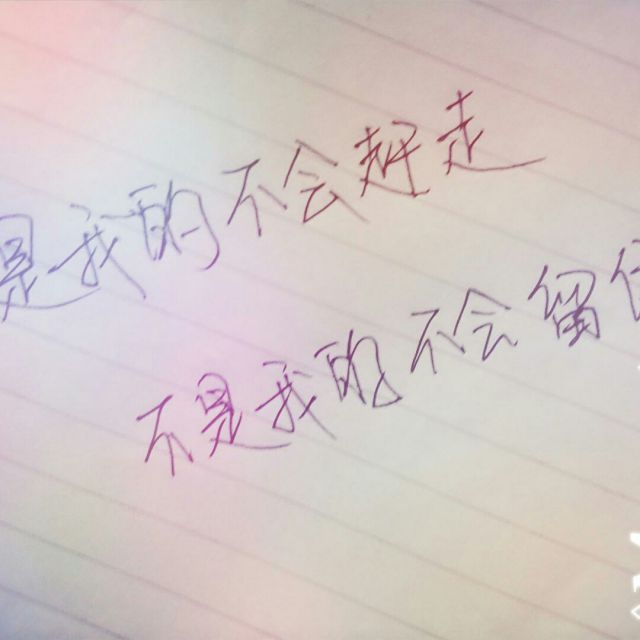 是我的不会赶走
不是我的不会留